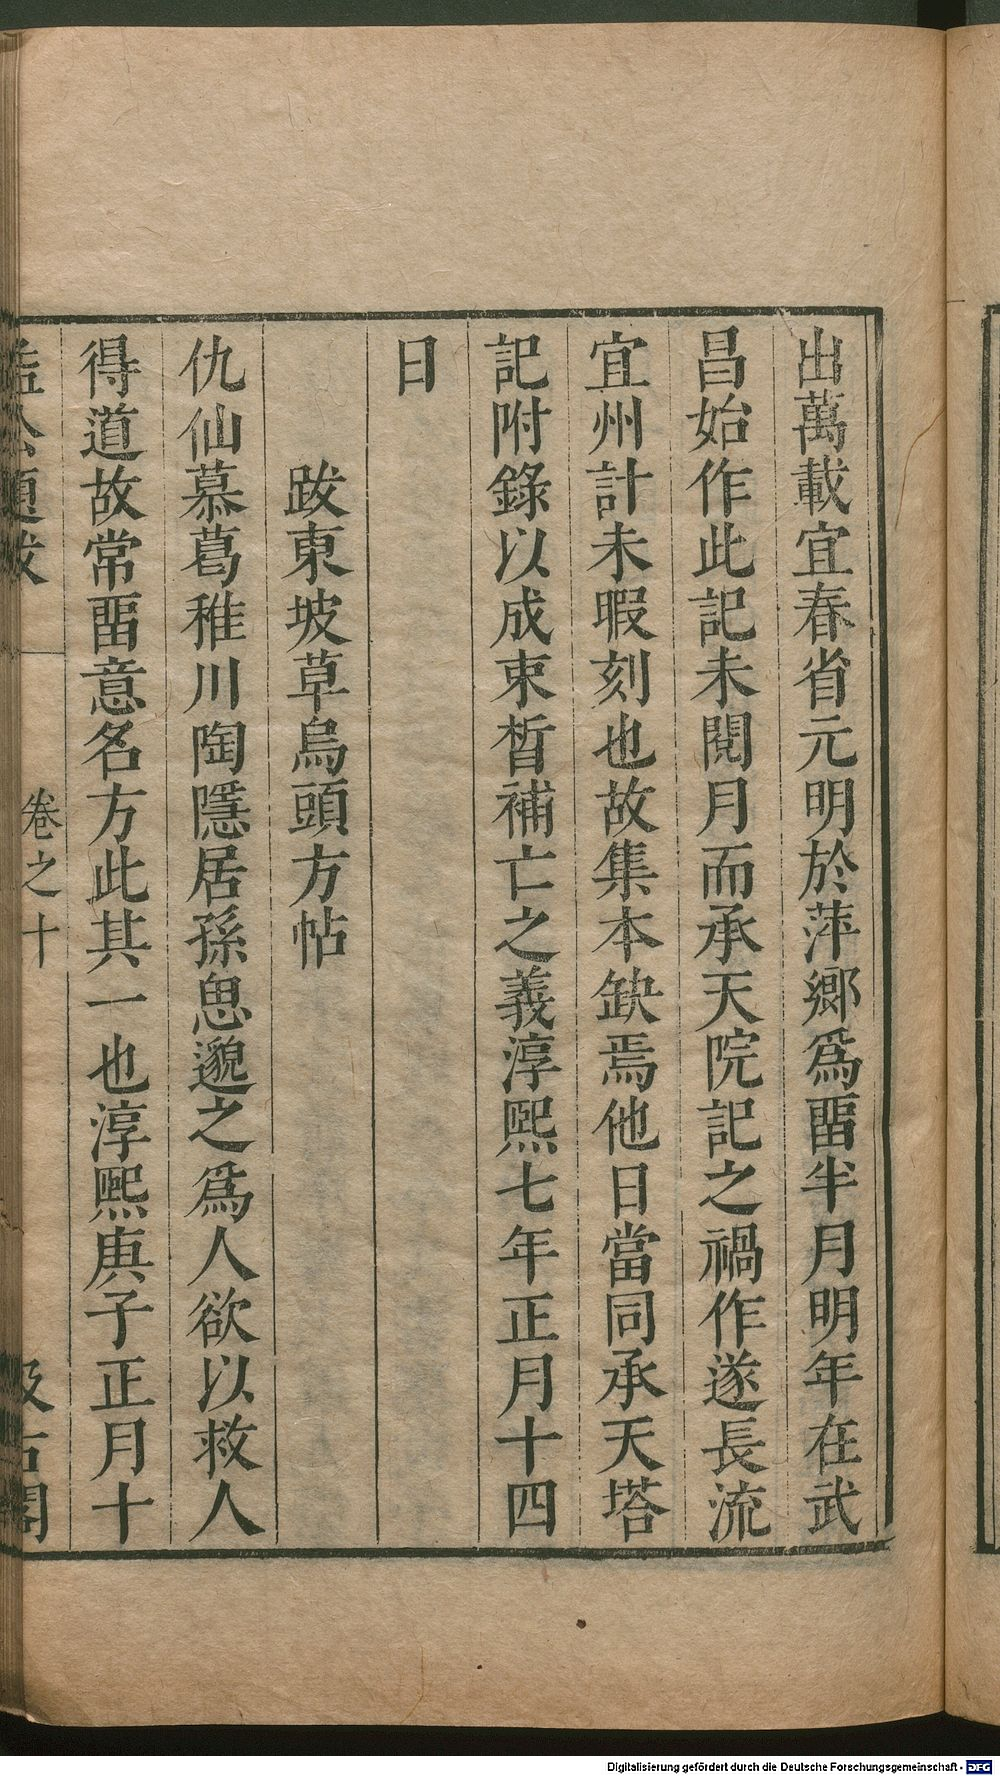 出萬載宜春省元明於萍鄉爲畱半月明年在武
昌始作此記未閱月而承天院記之禍作遂長流
宜州計未暇刻也故集本缺焉他日當同承天塔
記附錄以成束晳補亡之義淳熙七年正月十四
日
跋東坡草烏頭方帖
仇仙慕葛稚川陶隱居孫思邈之爲人欲以救人
得道故常畱意名方此其一也淳熙庚子正月十
益公題跋 卷之十 汲古閣
Digitalisierung gefördert durch die Deutsche Forschungsgemeinschaft - DFG